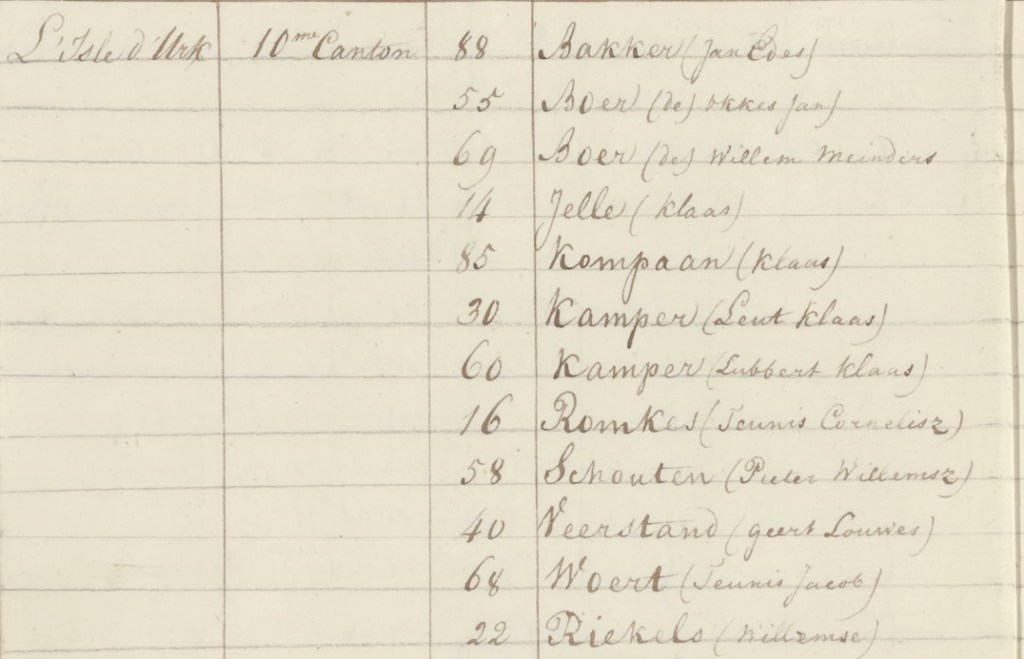 L'Isle d'Urk 10me Canton 88 Bakker (Jan Edes)
55 Boer (de) okkes Jan)
69 Boer (de) Willem Meinders
14 Jelle (klaas)
85 Kompaan (klaas)
30 Kamper (Leut klaas)
60 Kamper (Lubbert klaas)
16 Romkes (Teunis Cornelisz)
58 Schouten (Pieter Willemsz)
40 Veerstand (geert Louwes)
68 Woert (Teunis Jacob)
22 Riekels (Willemse)